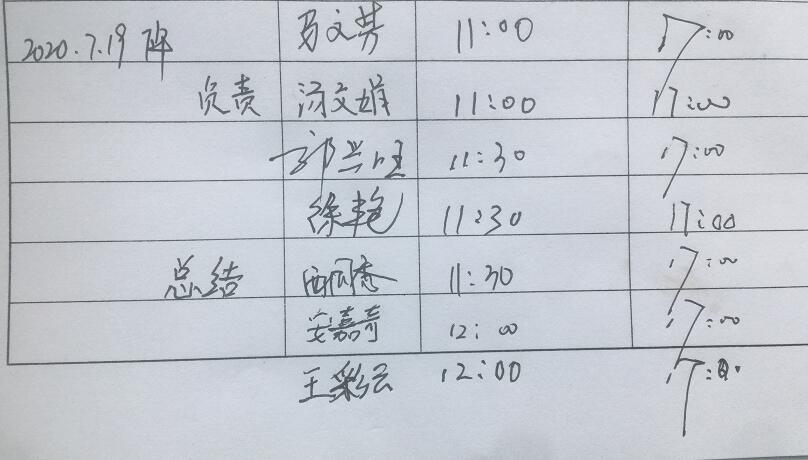 2020.7.19 马文芳 11:00 17:00
负责 汤文娟 11:00 17:00
郭兴旺 11:30 17:00
徐艳 11:30 17:00
总结 11:30 17:00
安嘉奇 12:00 17:00
王彩云 12:00 17:00